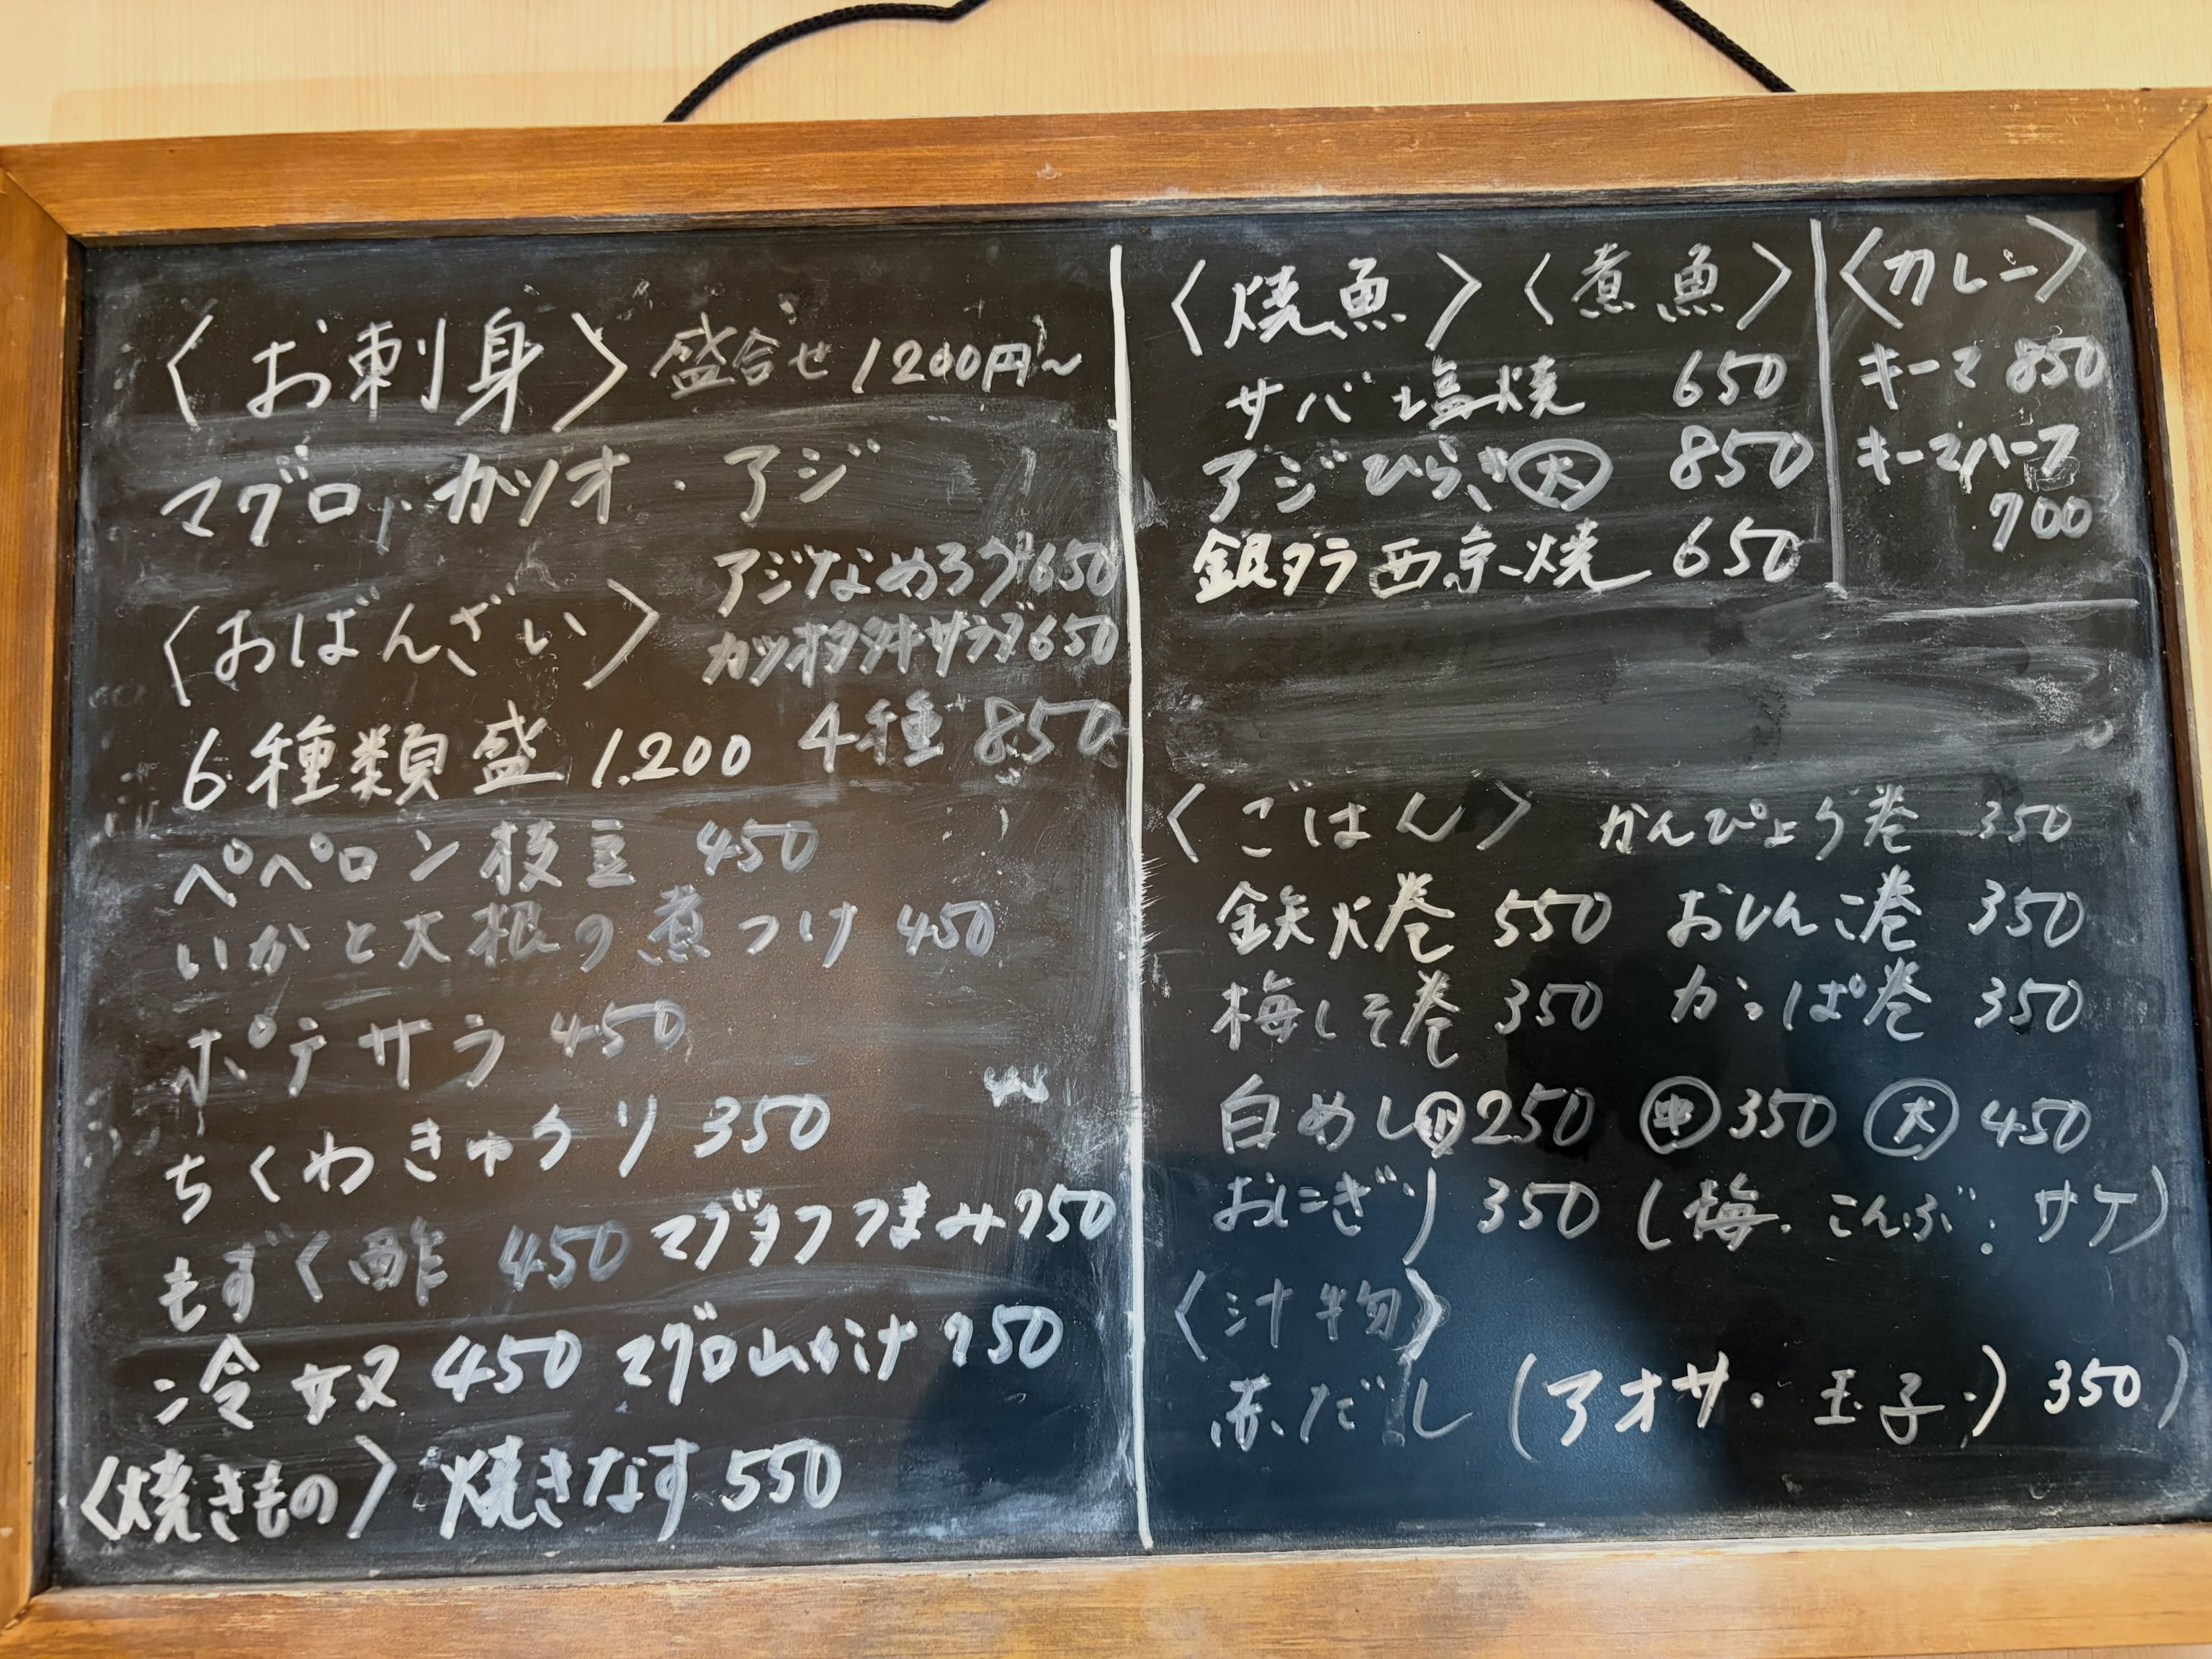 〈お刺身〉 盛合せ 1200円〜
マグロ・カツオ・アジ
アジなめろう 650
〈おばんざい〉
カツオタタキサラダ 650
6種類盛 1.200 4種 850
ペペロン枝豆 450
いかと大根の煮つけ 450
ポテサラ 450
ちくわきゅうり 350
もずく酢 450 マグタクつまみ 750
冷奴 450 マグロ山かけ 750
〈焼きもの〉 焼きなす 550
〈焼魚〉 〈煮魚〉
サバ塩焼 650
アジひらき 大 850
銀ダラ西京焼 650
〈カレー〉
キーマ 850
キーマハーフ
700
〈ごはん〉 かんぴょう巻 350
鉄火巻 550 おしんこ巻 350
梅しそ巻 350 かっぱ巻 350
白めし 小 250 中 350 大 450
おにぎり 350 (梅・こんぶ・サケ)
〈汁物〉
赤だし (アオサ・玉子・) 350)